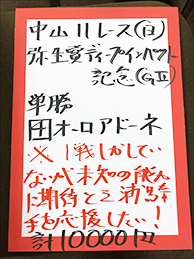 中山11レース(日)
弥生賞ディープインパクト
記念(GⅡ)
単勝
田オーロアドーネ
※1戦しかしてい
ないが未知の能力
に期待と三浦騎
手を応援したい!
計10000円